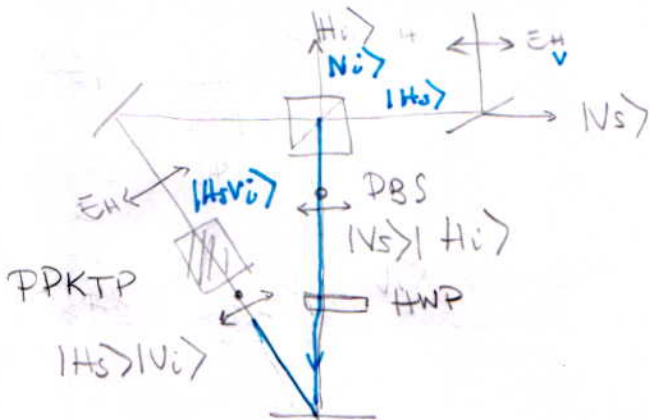 |Hi⟩
|Vi⟩
EH
V
|Hs⟩
|Vs⟩
EH
|HsVi⟩
DBS
|Vs⟩|Hi⟩
PPKTP
HWP
|Hs⟩|Vi⟩